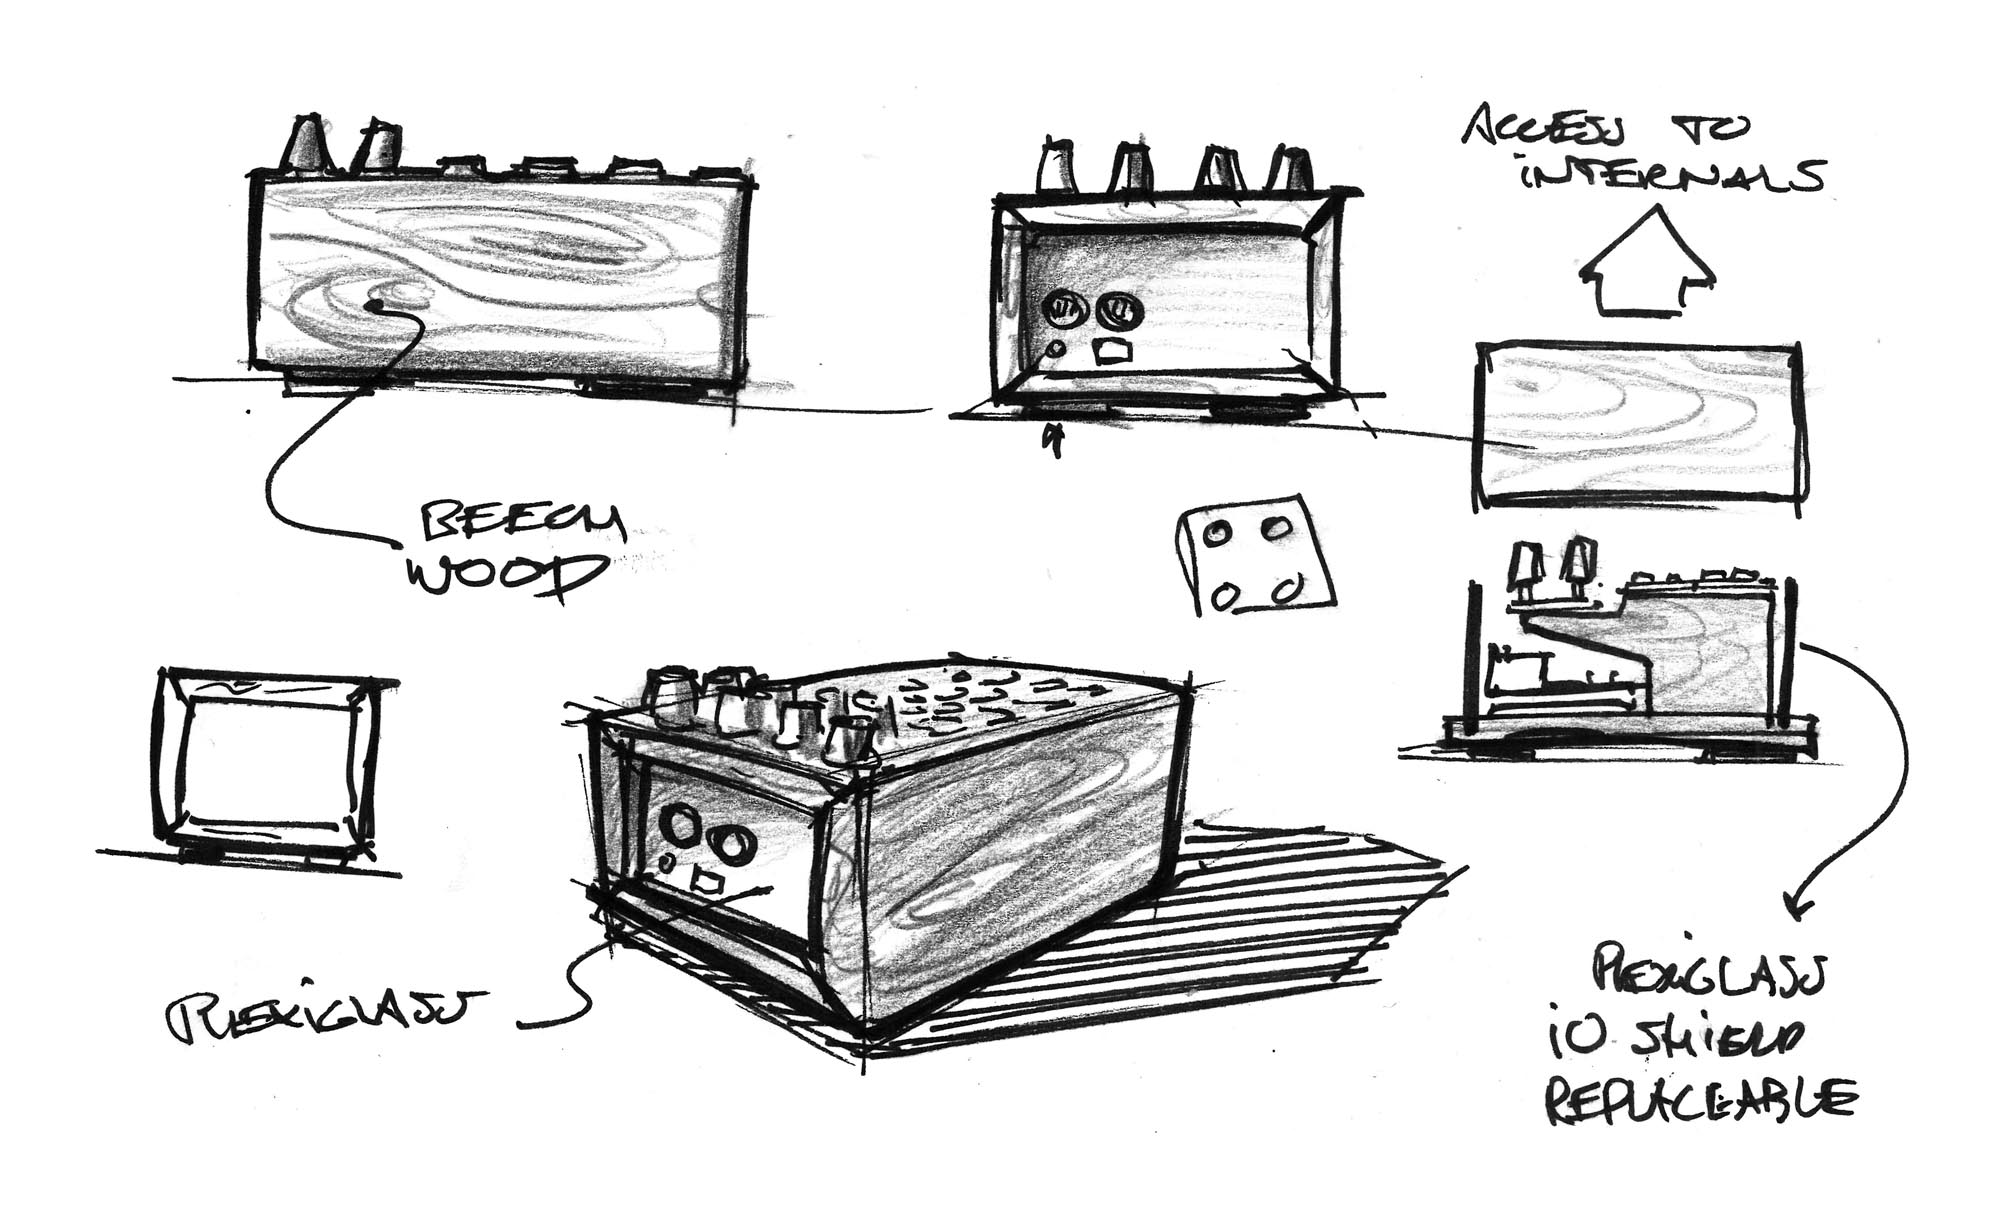 ACCESS TO
iNTERNALS
BEECH
WOOD
PLEXiGLASS
PLEXiGLASS
iO SHiELD
REPLACEABLE